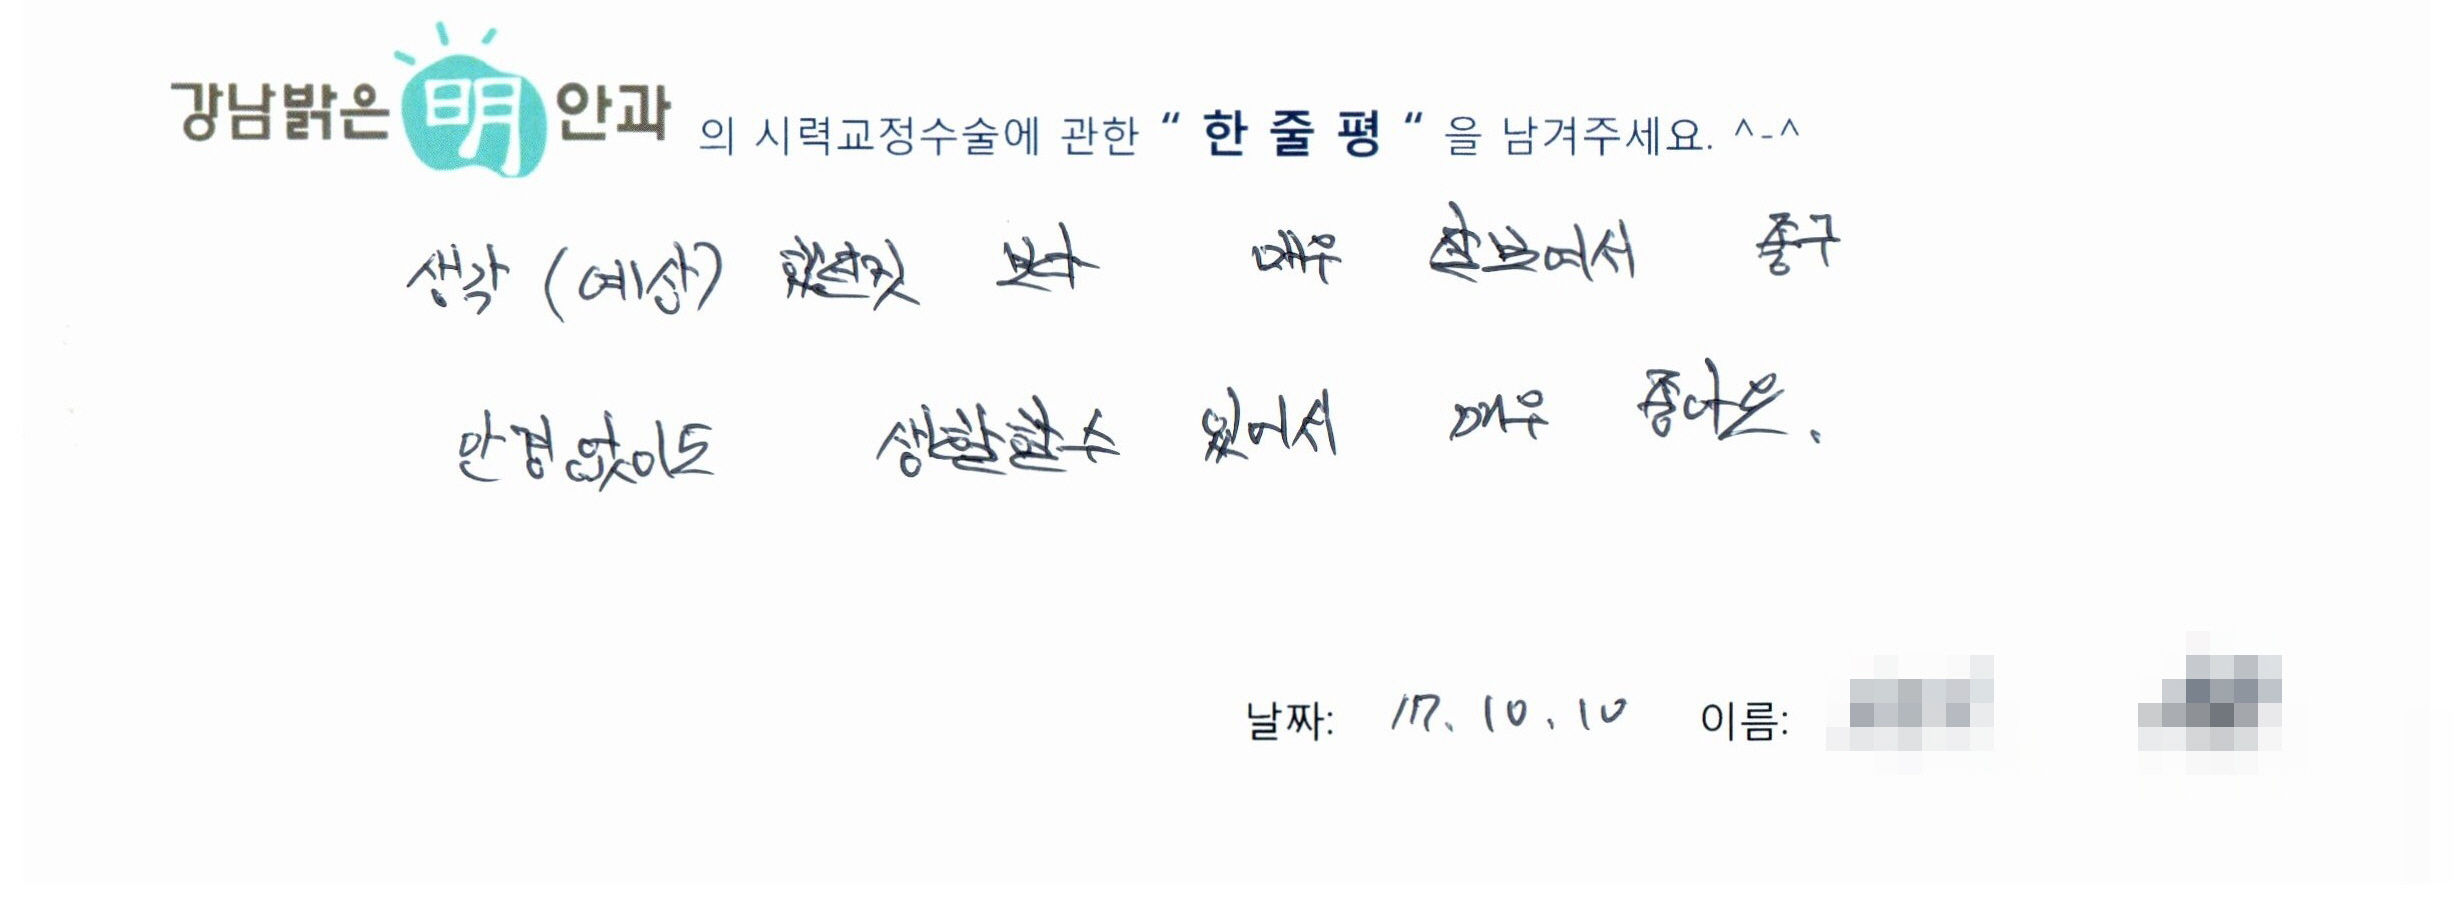 강남밝은明안과 의 시력교정수술에 관한 “ 한 줄 평 “ 을 남겨주세요. ^-^
생각 (예상) 했던것 보다 매우 잘보여서 좋구
안경없이도 생활할수 있어서 매우 좋아요.
날짜: 17. 10. 10 이름: